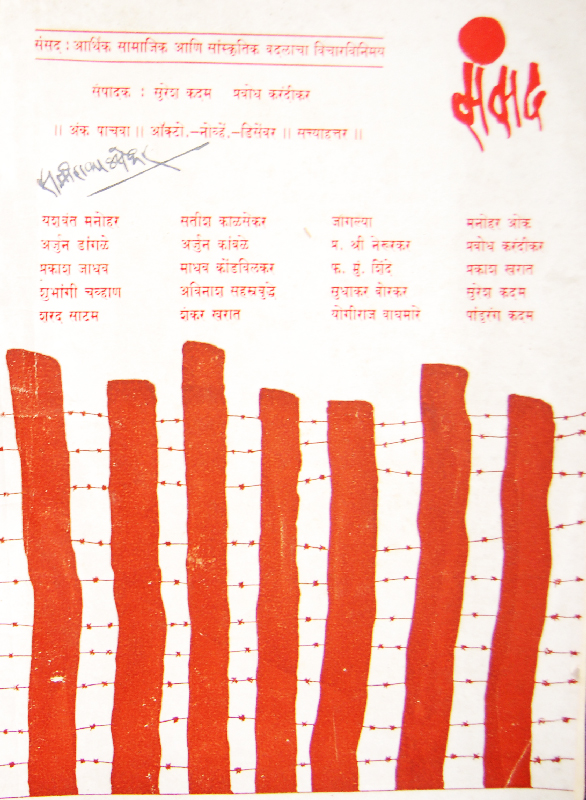 संसद : आर्थिक सामाजिक आणि सांस्कृतिक बदलाचा विचारविनिमय
संसद
संपादक : सुरेश कदम प्रबोध करंदीकर
॥ अंक पाचवा ॥ ऑक्टो.-नोव्हें.-डिसेंबर ॥ सत्त्याहत्तर ॥
यशवंत मनोहर
अर्जुन डांगळे
प्रकाश जाधव
शुभांगी चव्हाण
शरद साटम
सतीश काळसेकर
अर्जुन कांबळे
माधव कोंडविलकर
अविनाश सहस्त्रबुद्धे
शंकर खरात
जांगल्या
प्र. श्री नेरूरकर
फ. मुं. शिंदे
सुधाकर बोरकर
योगीराज वाघमारे
मनोहर ओक
प्रबोध करंदीकर
प्रकाश खरात
सुरेश कदम
पांडुरंग कदम